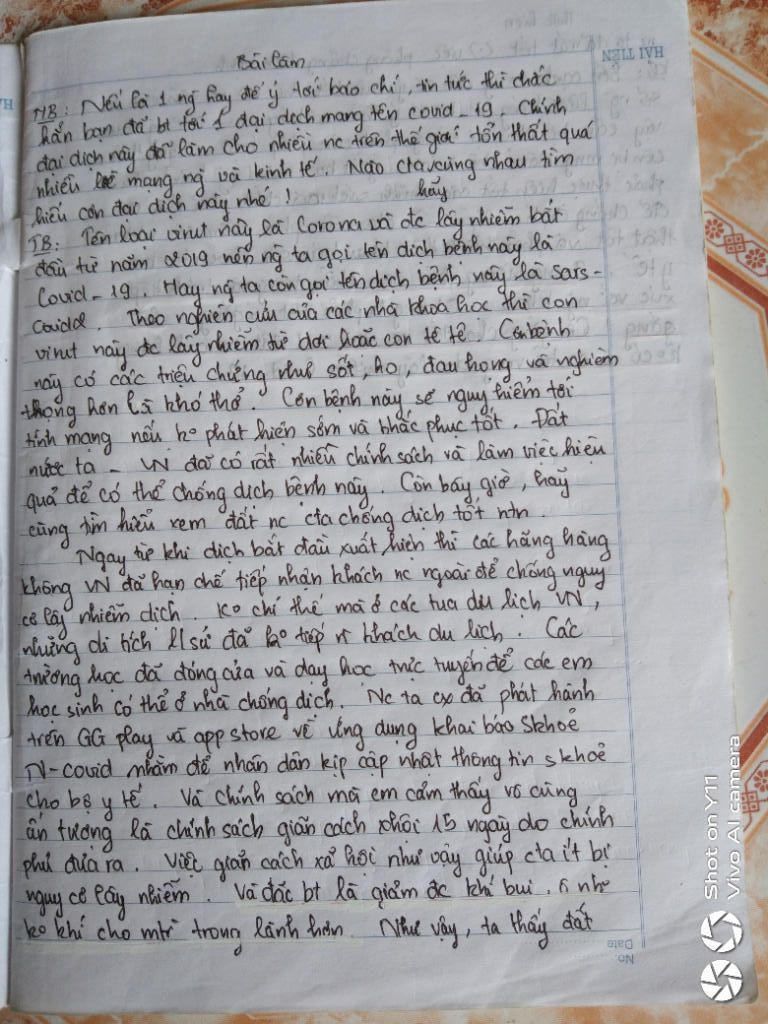 Bài làm
HAI TIEN
MB: Nếu là 1 ng hay để ý tới báo chí, tin tức thì chắc
hẳn bạn đã bt tới 1 đại dịch mang tên covid-19. Chính
đại dịch này đã làm cho nhiều nc trên thế giới tổn thất quá
nhiều về mạng ng và kinh tế. Nào cta hãy cùng nhau tìm
hiểu cơn đại dịch này nhé!
TB: Tên loại virut này là Corona và đc lây nhiễm bắt
đầu từ năm 2019 nên ng ta gọi tên dịch bệnh này là
Covid-19. Hay ng ta còn gọi tên dịch bệnh này là sars-
covid2. Theo nghiên cứu của các nhà khoa học thì con
virut này đc lây nhiễm từ dơi hoặc con tê tê. Cơn bệnh
này có các triệu chứng như sốt, ho, đau họng và nghiêm
trọng hơn là khó thở. Cơn bệnh này sẽ nguy hiểm tới
tính mạng nếu ko phát hiện sớm và khắc phục tốt. Đất
nước ta - VN đã có rất nhiều chính sách và làm việc hiệu
quả để có thể chống dịch bệnh này. Còn bây giờ, hãy
cùng tìm hiểu xem đất nc cta chống dịch tốt ntn.
Ngay từ khi dịch bắt đầu xuất hiện thì các hãng hàng
không VN đã hạn chế tiếp nhận khách nc ngoài để chống nguy
cơ lây nhiễm dịch. Ko chỉ thế mà ở các tua du lịch VN,
những di tích lsử đã ko tiếp khách du lịch. Các
trường học đã đóng cửa và dạy học trực tuyến để các em
học sinh có thể ở nhà chống dịch. Nc ta cx đã phát hành
trên GG play và app store về ứng dụng khai báo skhoẻ
N-covid nhằm để nhân dân kịp cập nhật thông tin skhoẻ
cho bộ y tế. Và chính sách mà em cảm thấy vô cùng
ấn tượng là chính sách giãn cách xhội 15 ngày do chính
phủ đưa ra. Việc giãn cách xã hội như vậy giúp cta ít bị
nguy cơ lây nhiễm. Và đặc bt là giảm đc khí bụi, ô nh
ko khí cho mtr trong lành hơn. Như vậy, ta thấy đất
No:
Date
Shot on Y11
Vivo AI camera